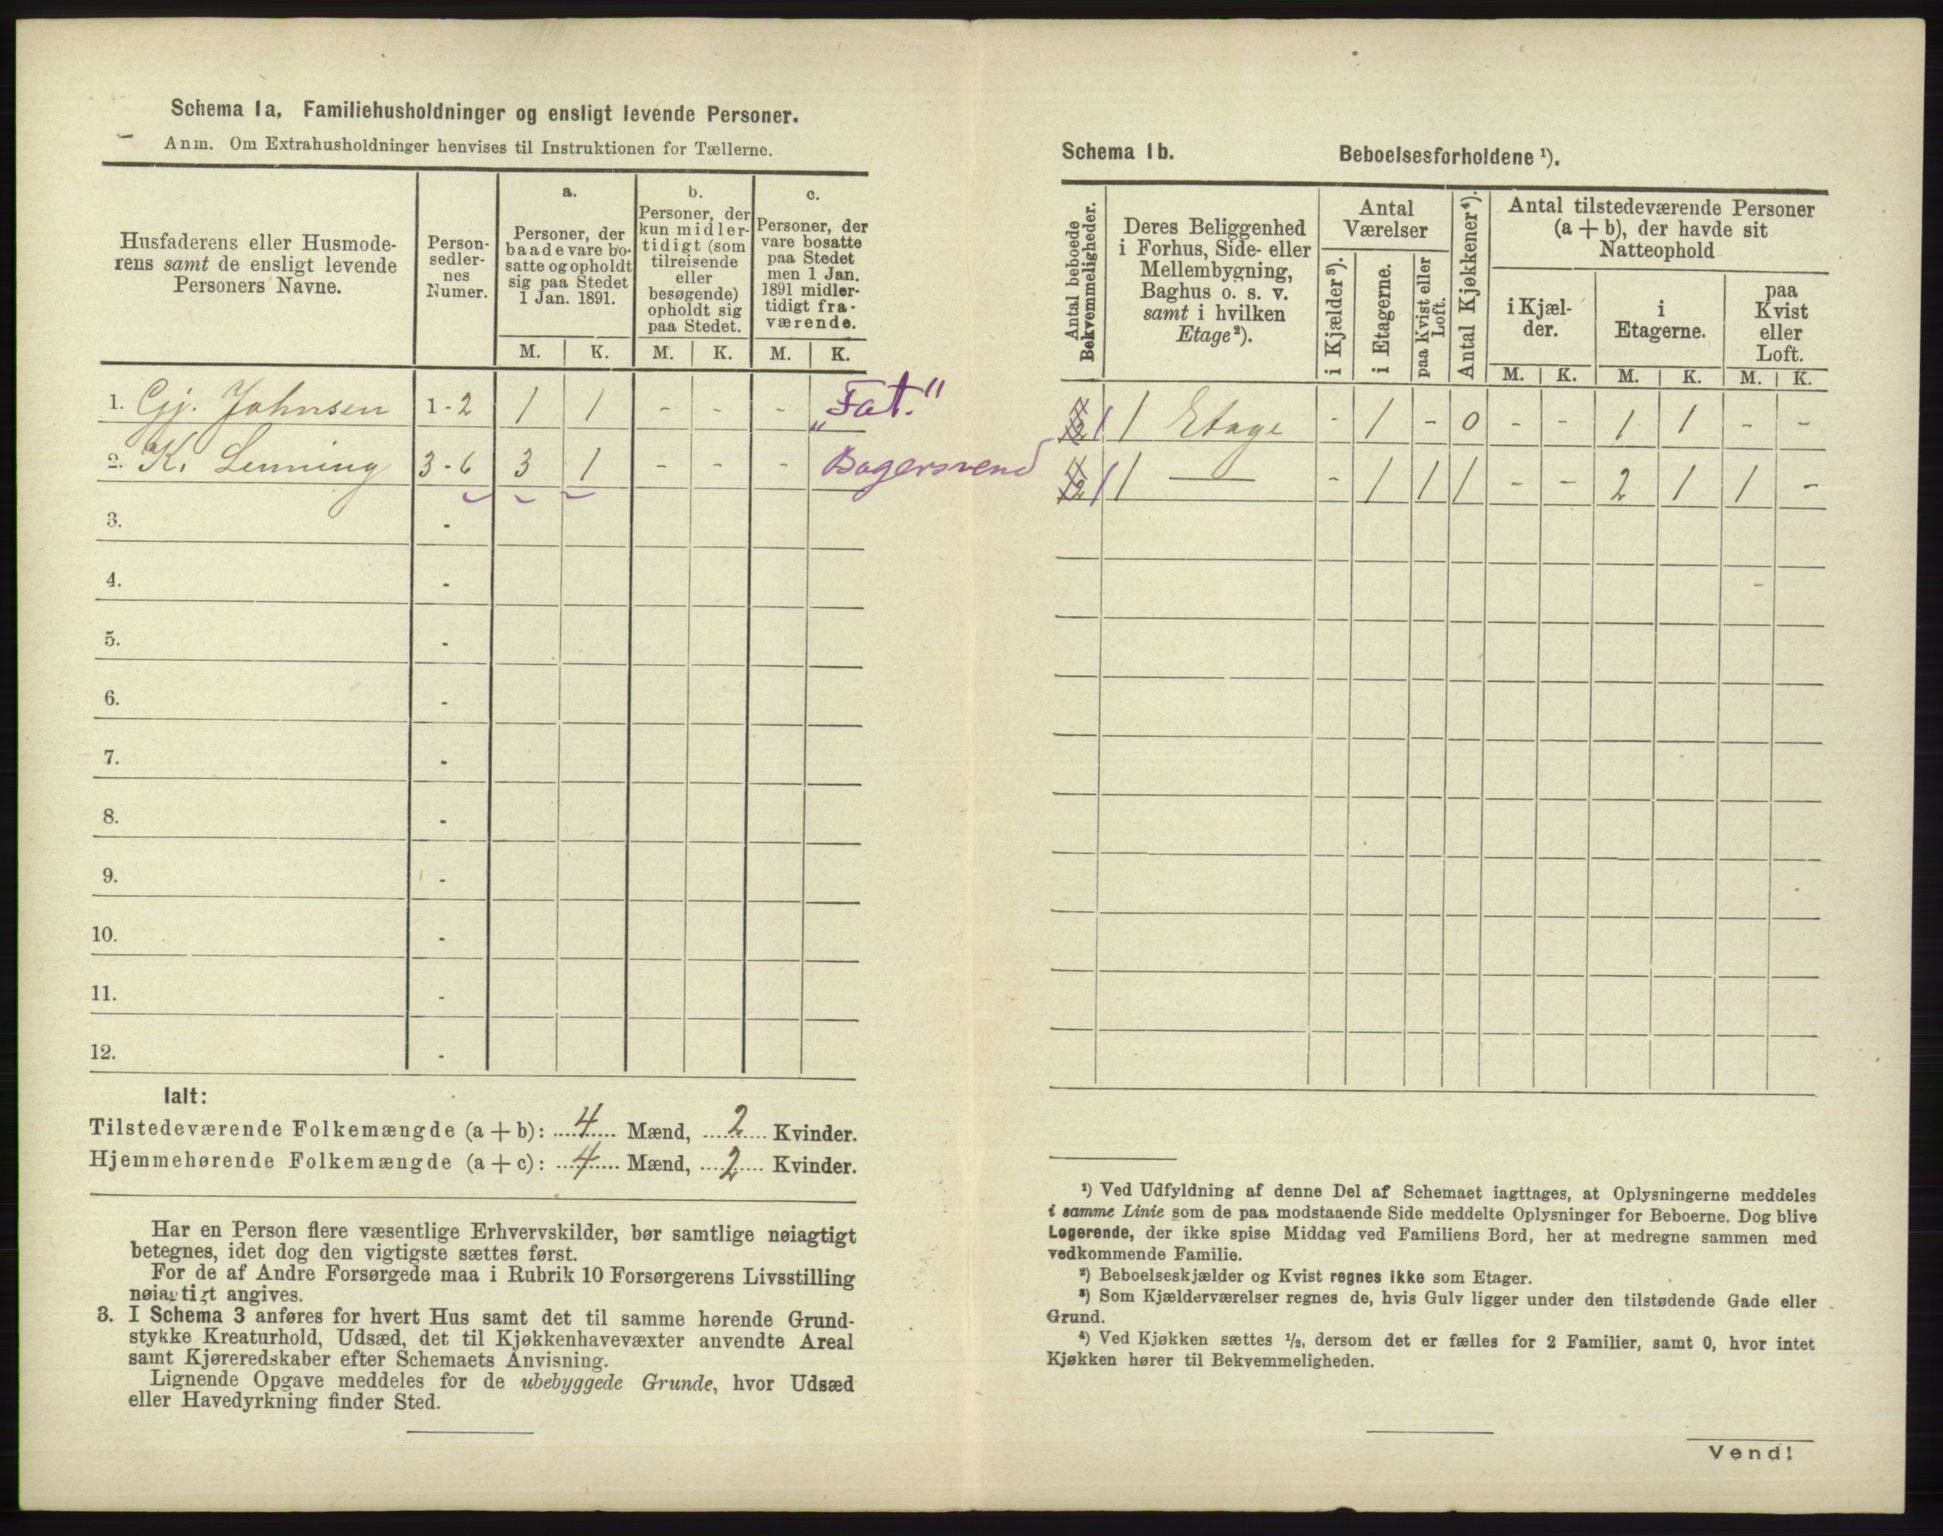 Schema 1a, Familiehusholdninger og ensligt levende Personer.
Anm. Om Extrahusholdninger henvises til Instruktionen for Tællerne.
Husfaderens eller Husmode-
rens samt de ensligt levende
Personers Navne.
Person-
sedler-
nes
Numer.
a.
Personer, der
baade vare bo-
satte og opholdt
sig paa Stedet
1 Jan. 1891.
b.
Personer, der
kun midler-
tidigt (som
tilreisende
eller
besøgende)
opholdt sig
paa Stedet.
c.
Personer, der
vare bosatte
paa Stedet
men 1 Jan.
1891 midler-
tidigt fra-
værende.
M. K. M. K. M. K.
1. Gj. Johnsen 1-2 1 1 - - - „Fat.“
2. K. Lenning 3-6 3 1 - - - Bagersvend
3. -
4. -
5. -
6. -
7. -
8. -
9. -
10. -
11. -
12. -
Ialt:
Tilstedeværende Folkemængde (a + b): 4 Mænd, 2 Kvinder.
Hjemmehørende Folkemængde (a + c): 4 Mænd, 2 Kvinder.
Har en Person flere væsentlige Erhvervskilder, bør samtlige nøiagtigt
betegnes, idet dog den vigtigste sættes først.
For de af Andre Forsørgede maa i Rubrik 10 Forsørgerens Livsstilling
nøiagtigt angives.
3. I Schema 3 anføres for hvert Hus samt det til samme hørende Grund-
stykke Kreaturhold, Udsæd, det til Kjøkkenhavevæxter anvendte Areal
samt Kjøreredskaber efter Schemaets Anvisning.
Lignende Opgave meddeles for de ubebyggede Grunde, hvor Udsæd
eller Havedyrkning finder Sted.
Schema 1b. Beboelsesforholdene ¹).
Antal beboede
Bekvemmeligheder.
Deres Beliggenhed
i Forhus, Side- eller
Mellembygning,
Baghus o. s. v.
samt i hvilken
Etage²).
Antal
Værelser
i Kjælder³).
i Etagerne.
paa Kvist eller
Loft.
Antal Kjøkkener⁴).
Antal tilstedeværende Personer
(a + b), der havde sit
Natteophold
i Kjæl-
der.
i
Etagerne.
paa
Kvist
eller
Loft.
M. K. M. K. M. K.
1 1 Etage - 1 - 0 - - 1 1 - -
1 1 — - 1 1 1 - - 2 1 1 -
¹) Ved Udfyldning af denne Del af Schemaet iagttages, at Oplysningerne meddeles
i samme Linie som de paa modstaaende Side meddelte Oplysninger for Beboerne. Dog blive
Logerende, der ikke spise Middag ved Familiens Bord, her at medregne sammen med
vedkommende Familie.
²) Beboelseskjælder og Kvist regnes ikke som Etager.
³) Som Kjælderværelser regnes de, hvis Gulv ligger under den tilstødende Gade eller
Grund.
⁴) Ved Kjøkken sættes ½, dersom det er fælles for 2 Familier, samt 0, hvor intet
Kjøkken hører til Bekvemmeligheden.
Vend!